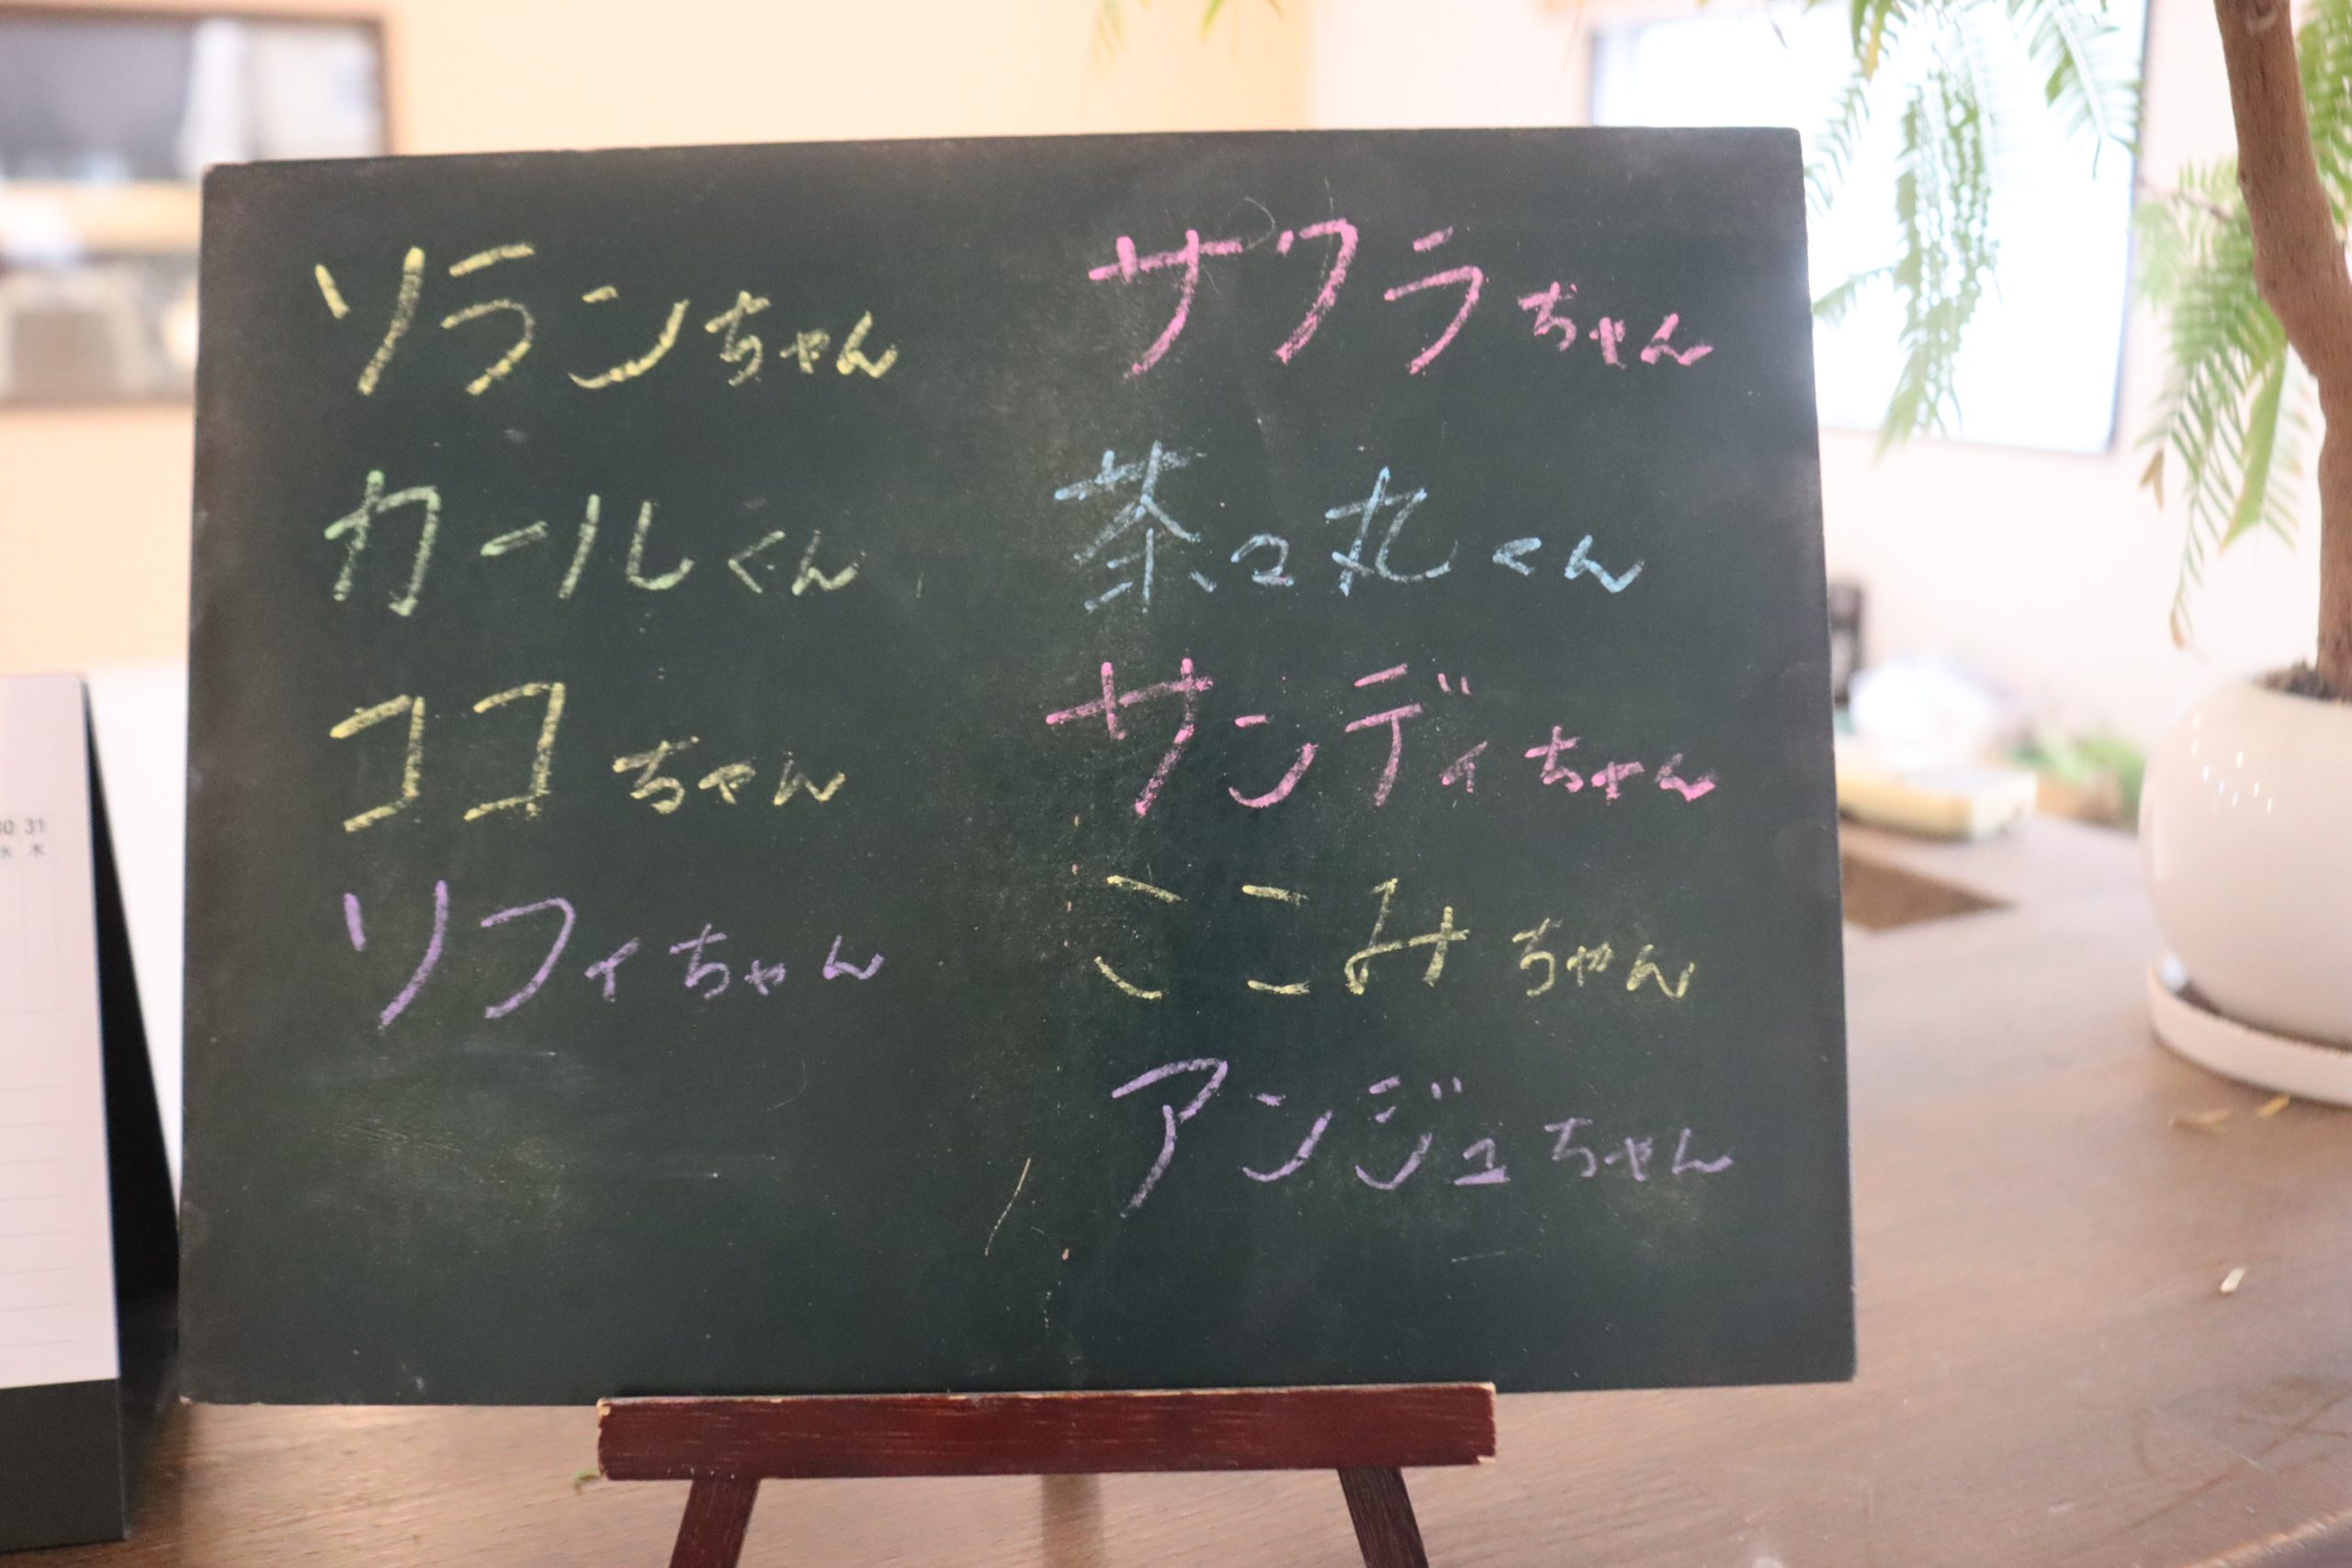 ソランちゃん
カールくん
ココちゃん
ソフィちゃん
サクラちゃん
茶々丸くん
サンディちゃん
ここみちゃん
アンジュちゃん
31
木